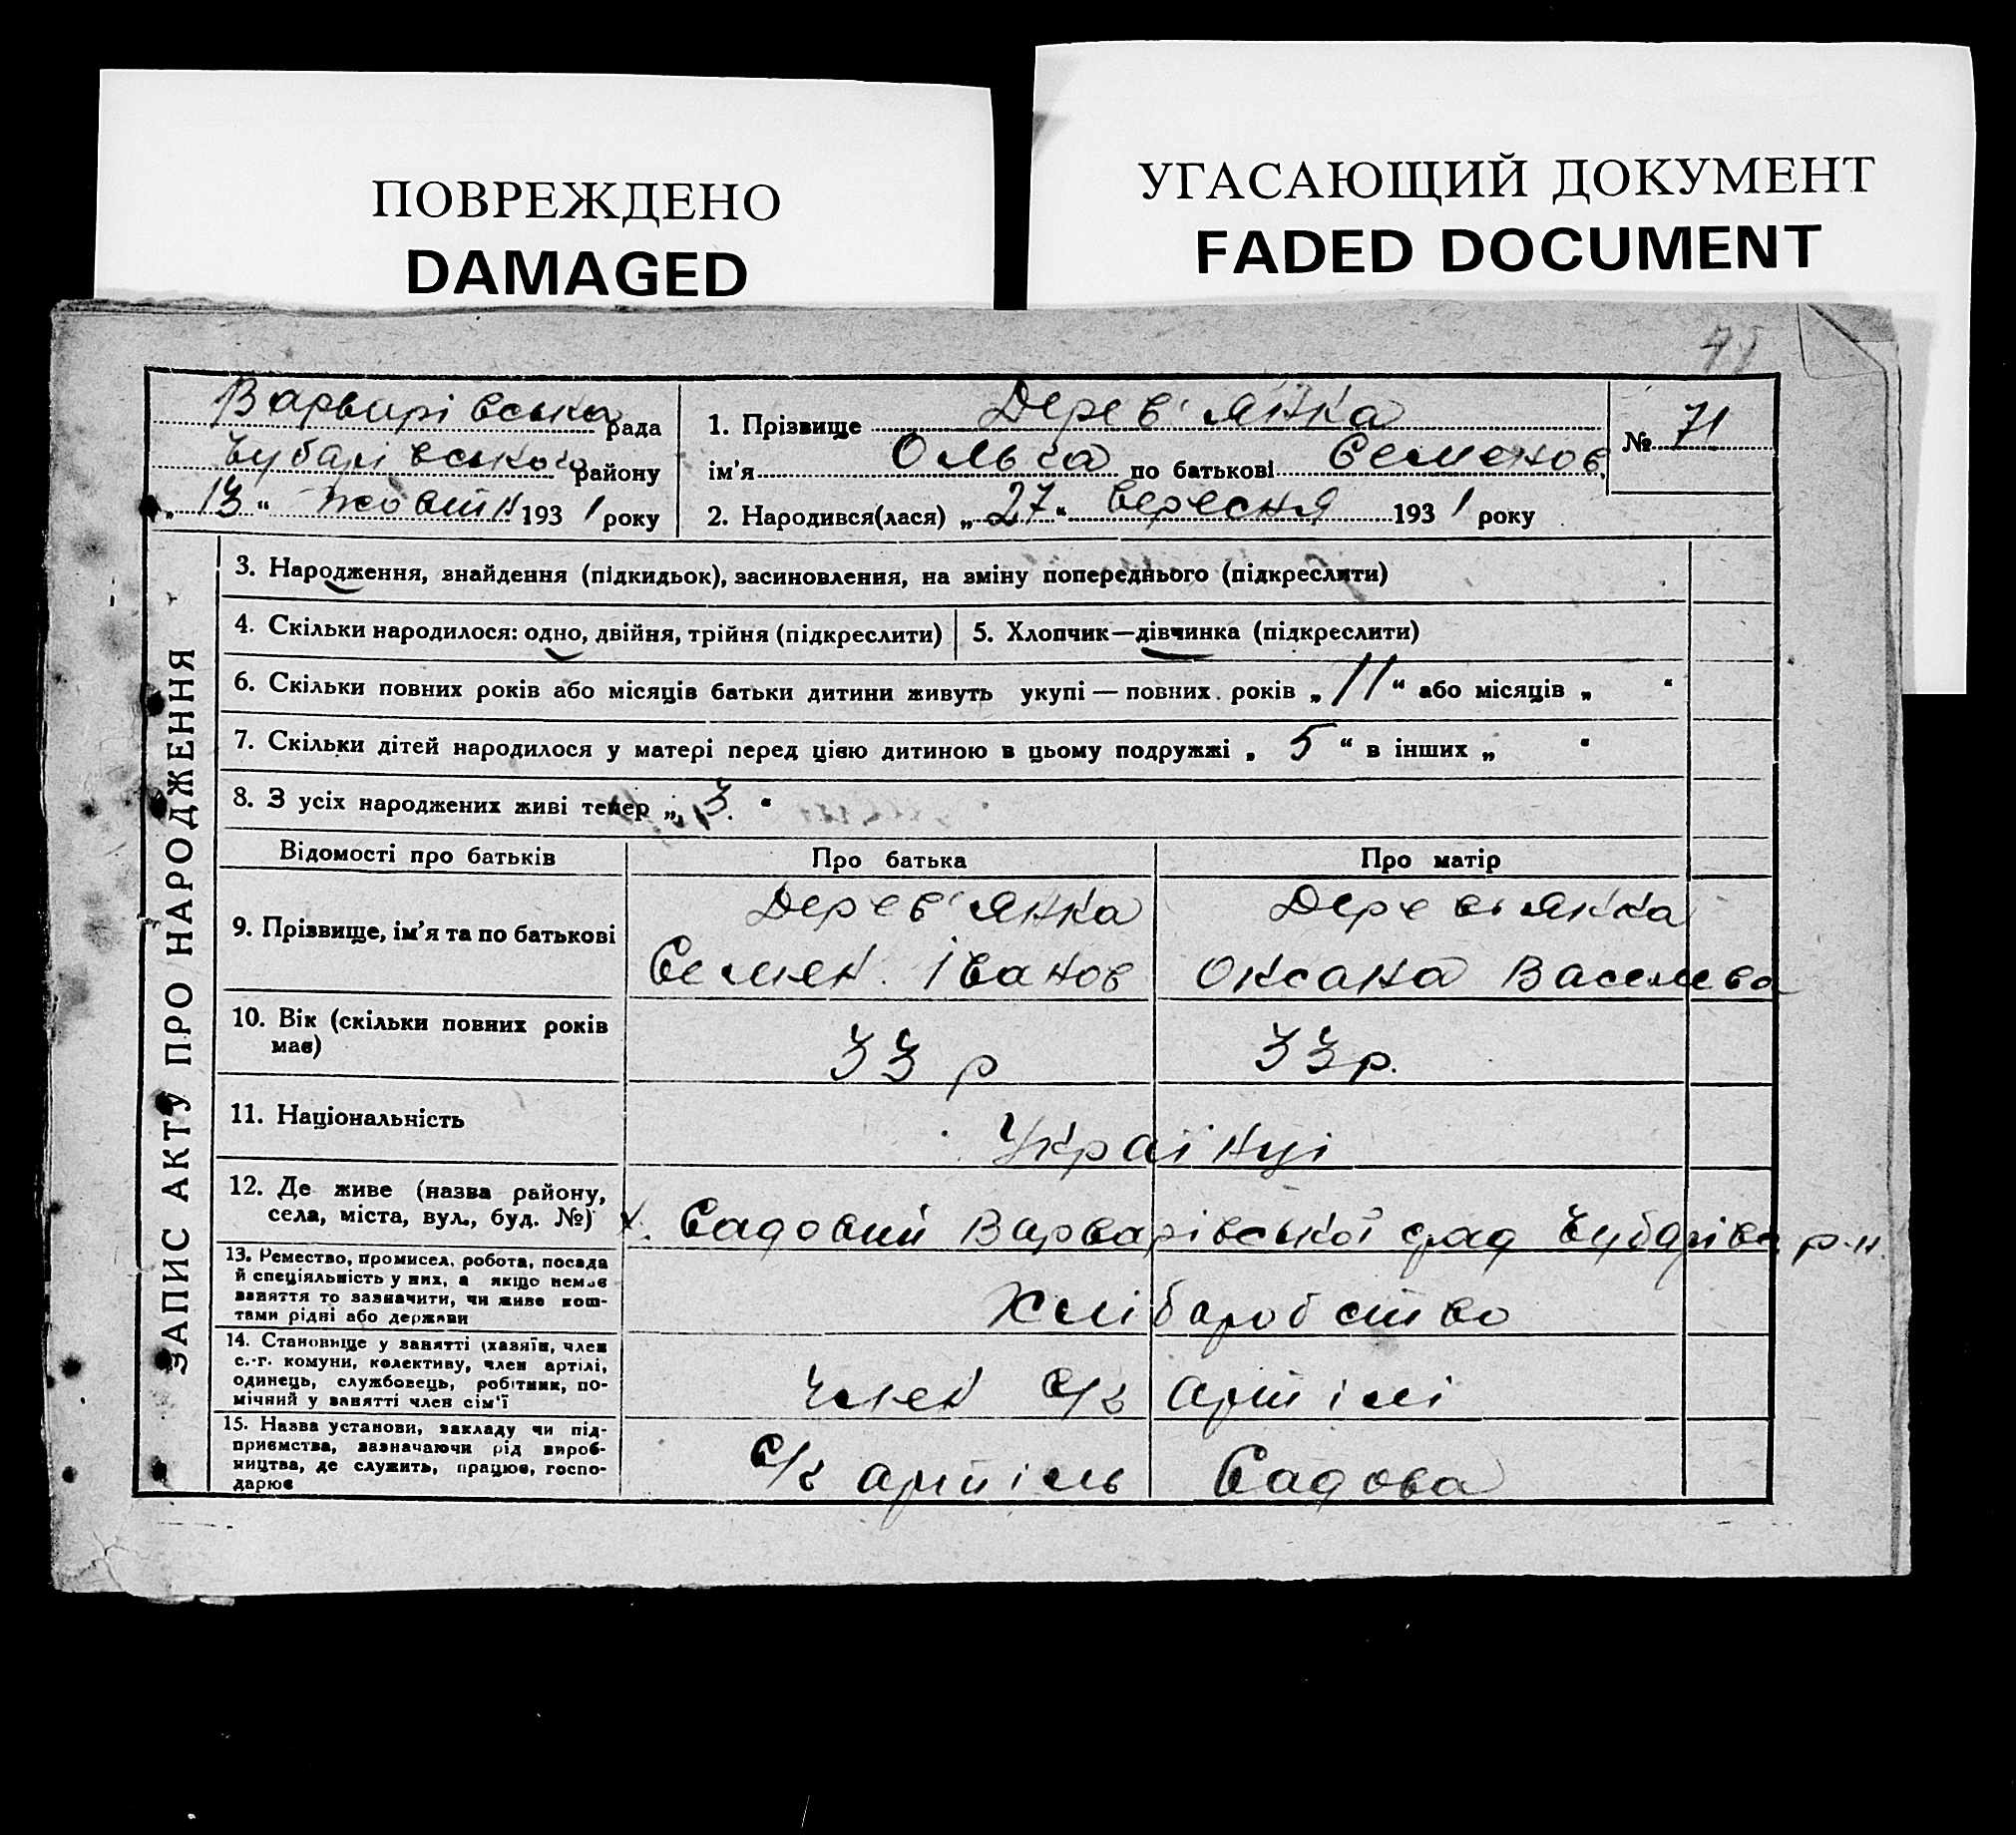 ПОВРЕЖДЕНО
DAMAGED
УГАСАЮЩИЙ ДОКУМЕНТ
FADED DOCUMENT
Варварівська рада
Чубарівського району
„13“ жовтн 1931 року
1. Прізвище Дерев'янка
ім'я Ольга по батькові Семенов.
2. Народився(лася) „27“ вересня 1931 року
№ 71
ЗАПИС АКТУ ПРО НАРОДЖЕННЯ
3. Народження, знайдення (підкидьок), засиновлення, на зміну попереднього (підкреслити)
4. Скільки народилося: одно, двійня, трійня (підкреслити)
5. Хлопчик—дівчинка (підкреслити)
6. Скільки повних років або місяців батьки дитини живуть укупі — повних років „11“ або місяців „ “
7. Скільки дітей народилося у матері перед цією дитиною в цьому подружжі „5“ в інших „ “
8. З усіх народжених живі тепер „3“
Відомості про батьків
Про батька
Про матір
9. Прізвище, ім'я та по батькові
Дерев'янка
Семен Іванов
Деревьянка
Оксана Василева
10. Вік (скільки повних років
має)
33 р
33 р.
11. Національність
Українці
12. Де живе (назва району,
села, міста, вул., буд. №)
х. Садовий Варварівської рад Чубарівс р-н.
13. Ремество, промисел, робота, посада
й спеціяльність у них, а якщо немає
заняття то зазначити, чи живе кош-
тами рідні або держави
Хліборобство
14. Становище у занятті (хазяїн, член
с.-г. комуни, колективу, член артілі,
одинець, службовець, робітник, по-
мічний у занятті член сім'ї
член с/г артілі
15. Назва установи, закладу чи під-
приємства, зазначаючи рід вироб-
ництва, де служить, працює, госпо-
дарює
с/г артіль Садова